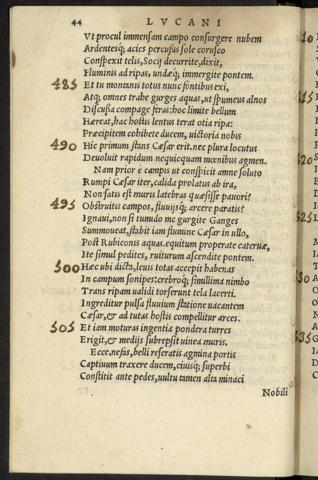 44 LVCANI
Vt procul immensam campo consurgere nubem
Ardentesq; acies percussus sole corusco
Conspexit telis, Socij decurrite, dixit,
Fluminis ad ripas, undæq; immergite pontem.
485 Et tu montanis totus nunc fontibus exi,
Atq; omnes trahe gurges aquas, ut spumeus alnos
Discussa compage feras: hoc limite bellum
Hæreat, hac hostis lentus terat otia ripa:
Præcipitem cohibete ducem, uictoria nobis
490 Hic primum stans Cæsar erit. nec plura locutus
Deuoluit rapidum nequicquam mœnibus agmen.
Nam prior è campis ut conspicit amne soluto
Rumpi Cæsar iter, calida prolatus ab ira,
Non satis est muris latebras quæsisse pauori?
495 Obstruitis campos, fluuijsq; arcere paratis?
Ignaui, non si tumido me gurgite Ganges
Summoueat, stabit iam flumine Cæsar in ullo,
Post Rubiconis aquas. equitum properate cateruæ,
Ite simul pedites, ruiturum ascendite pontem.
500 Hæc ubi dicta, leuis totas accepit habenas
In campum sonipes: crebroq; simillima nimbo
Trans ripam ualidi torserunt tela lacerti.
Ingreditur pulsa fluuium statione uacantem
Cæsar, & ad tutas hostis compellitur arces.
505 Et iam moturas ingentia pondera turres
Erigit, & medijs subrepsit uinea muris.
Ecce, nefas, belli reseratis agmina portis
Captiuum traxere ducem, ciuisq; superbi
Constitit ante pedes, uultu tamen alta minaci
Nobili